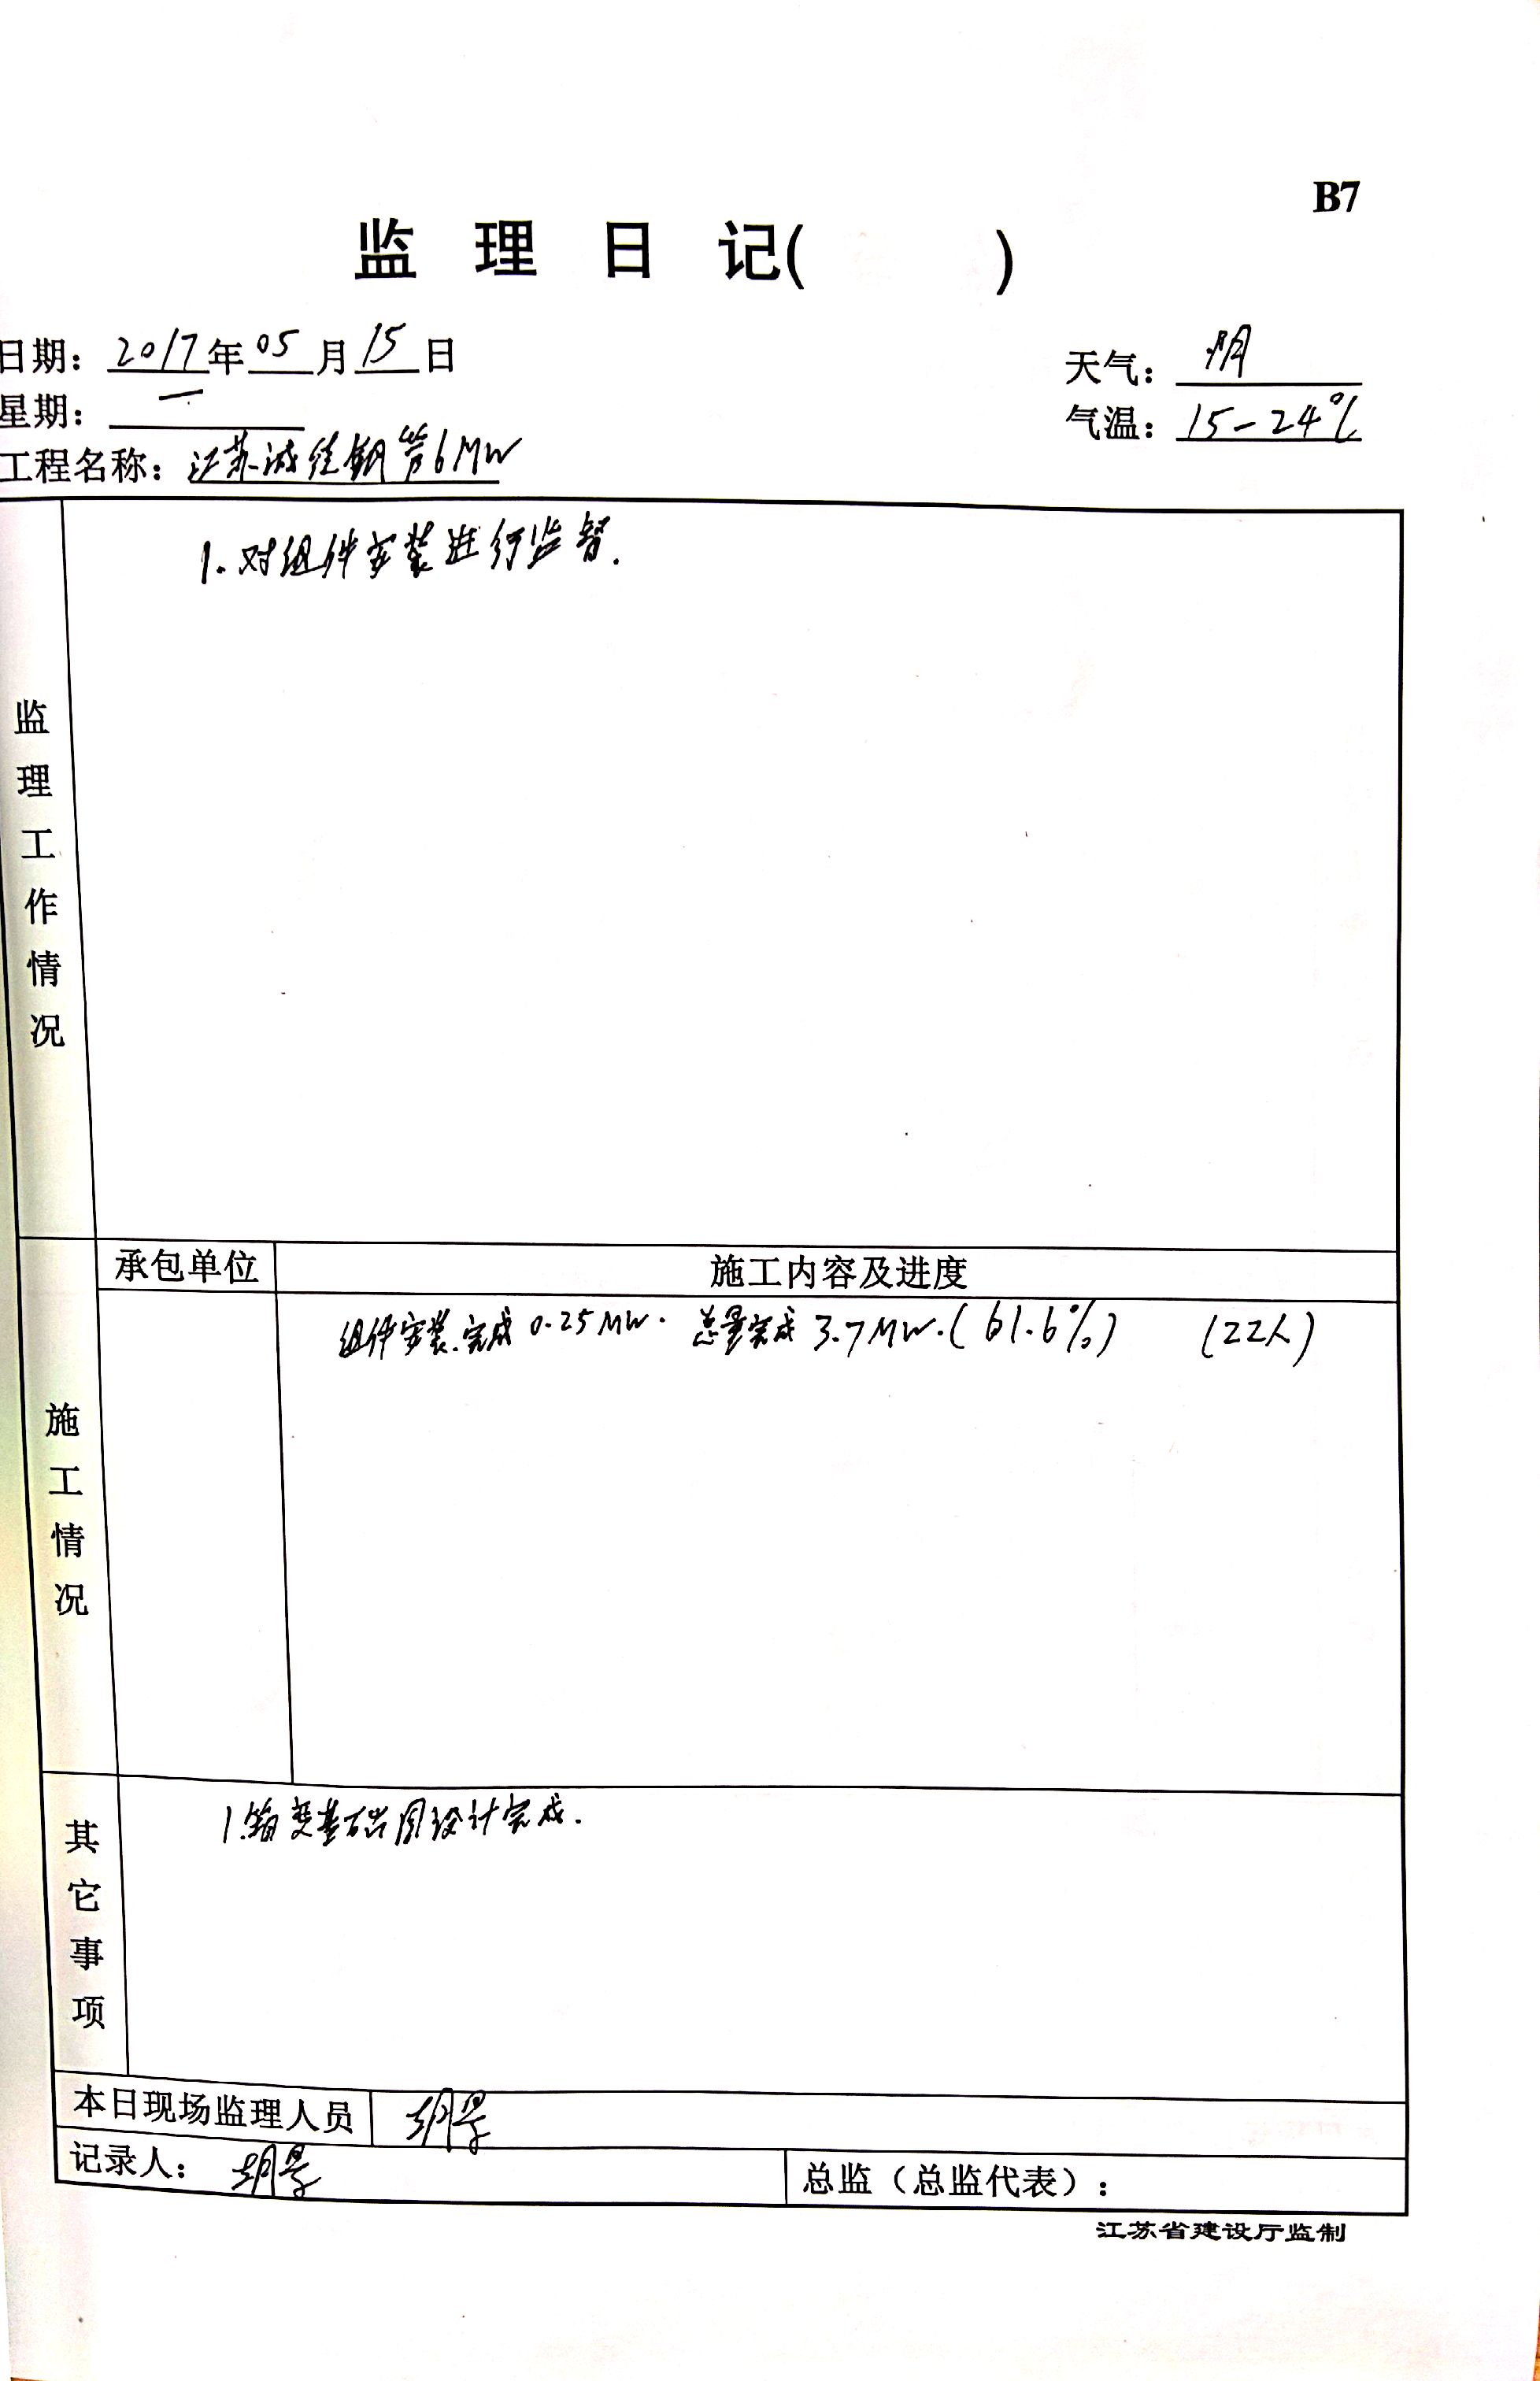 B7
监理日记( )
日期: 2017年05月15日
天气: 阴
星期: 一
气温: 15-24℃
工程名称: 江苏诚德钢管6MW
监理工作情况
1.对组件安装进行监督.
施工情况
承包单位
施工内容及进度
组件安装.完成0.25MW. 总量完成3.7MW.(61.6%) (22人)
其它事项
1.箱变基础图设计完成.
本日现场监理人员
记录人:
总监(总监代表):
江苏省建设厅监制